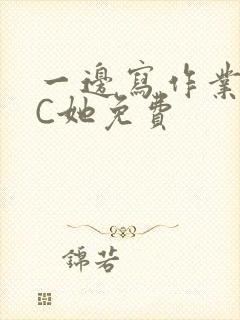 一邊寫作業
C她免費
錦若